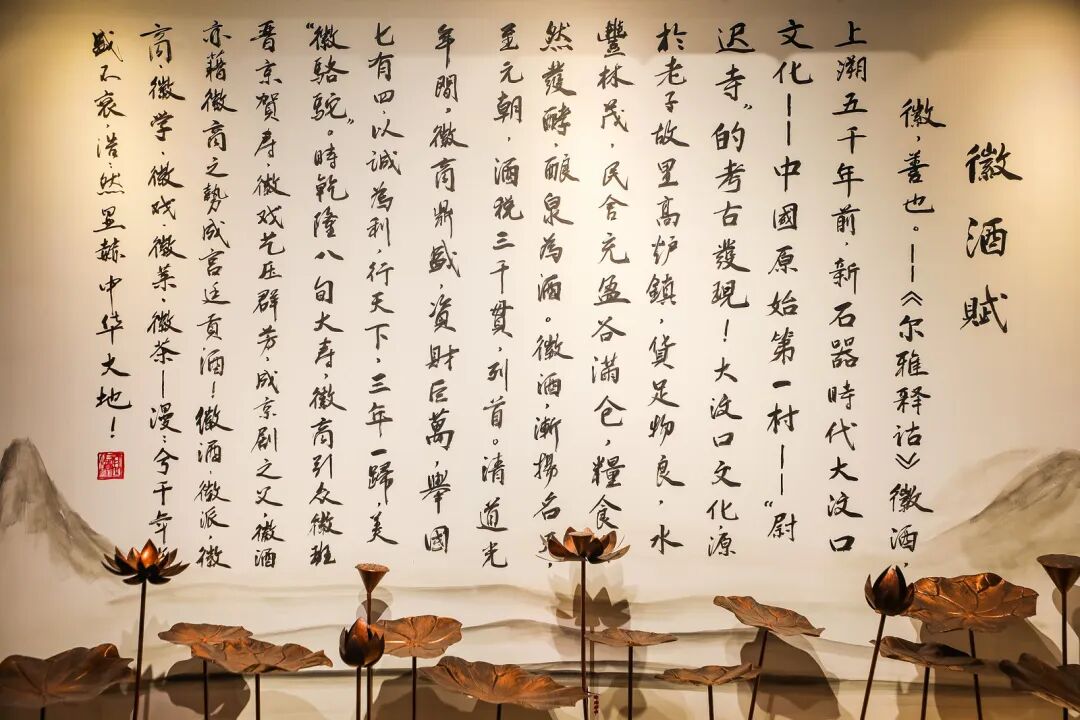 徽酒賦
徽，善也。——《尔雅释诂》徽酒，
上溯五千年前，新石器時代大汶口
文化——中國原始第一村——“尉
迟寺”的考古發現！大汶口文化，源
於老子故里高炉鎮，貨足物良，水
豐林茂，民舍充盈谷满仓，糧食
然發酵，酿泉為酒。徽酒，漸揚名
至元朝，酒税三千貫，列首。清道光
年間，徽商鼎盛，資財巨萬，舉國
七有四，以诚為利行天下，三年一歸，美
“徽駱駝”。時乾隆八旬大寿，徽商引众徽班
晋京賀寿，徽戏艺压群芳，成京剧之父，徽酒
亦藉徽商之勢成宫廷贡酒！徽酒，徽派，徽
商，徽学，徽戏，徽菜，徽茶—漫:兮千年
盛不衰，浩然显赫中华大地！